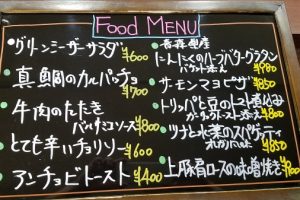 Food MENU
グリーンシーザーサラダ ¥600
真鯛のカルパッチョ ¥700
牛肉のたたき
バルサミコソース ¥800
とても辛いチョリソー ¥600
アンチョビトースト ¥400
青森県産
にんにくのハーブバターグラタン
バケット添え ¥980
サーモンマヨピザ ¥850
トリッパと豆のトマト煮込み
ガーリックトースト添え ¥800
ツナと水菜のスパゲティ
¥850
上豚肩ロースの味噌焼き